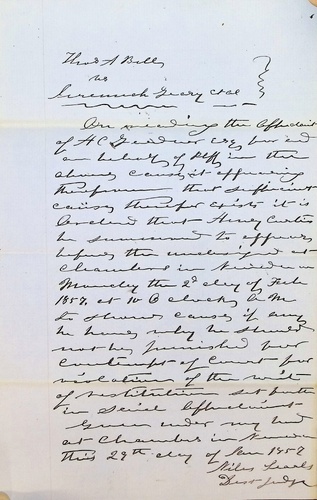 Thos A Bell
vs
Jeremiah Geary et al
On reading the Affidavit
of H C Gardner Esq for and
on behalf of Plff in the
above cause, it appearing
therefrom that sufficient
cause therefor exists it is
Ordered that Henry Curtis
be summoned to appear
before the undersigned at
Chambers in Nevada on
Monday the 2d day of Feb
1857, at 10 O clock A M
to show cause if any
he have, why he should
not be punished for
Contempt of Court for
violation of the writ
of restitution set forth
in said Affidavit
Given under my hand
at Chambers in Nevada
this 29th day of Jan 1857
Niles Searls
Dist Judge